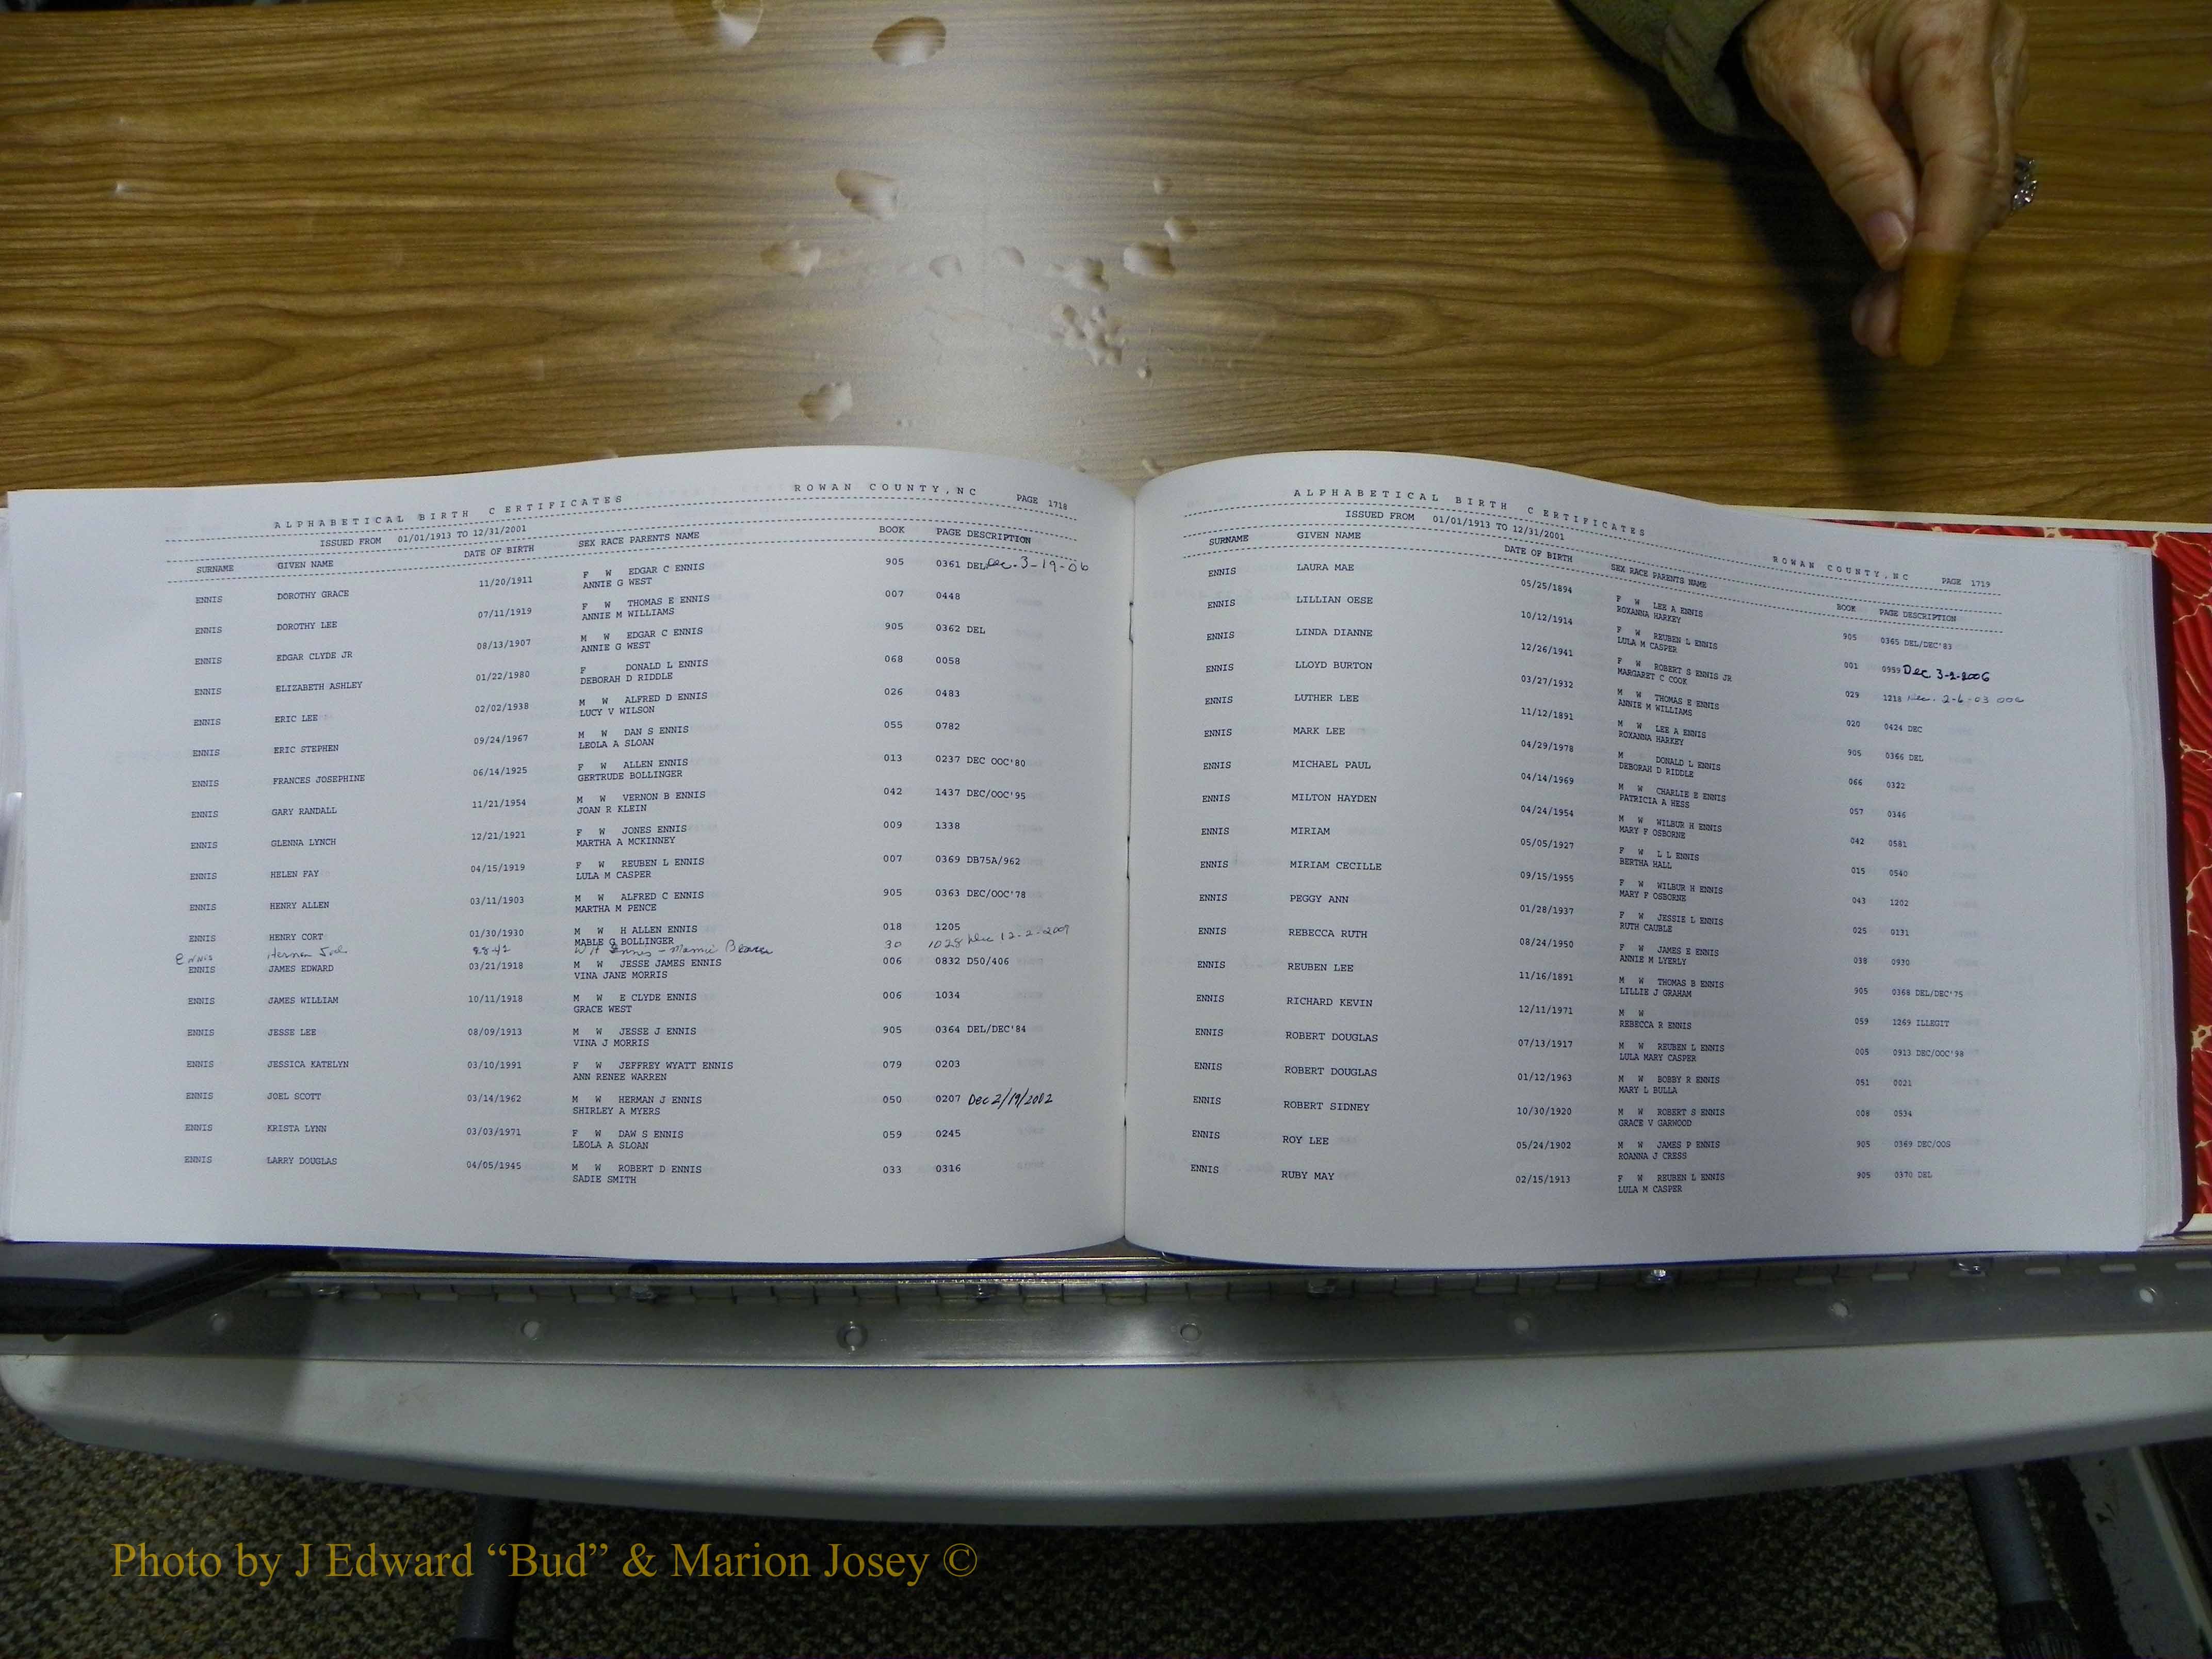 ALPHABETICAL BIRTH CERTIFICATES ROWAN COUNTY,NC PAGE 1718
ISSUED FROM 01/01/1913 TO 12/31/2001
SURNAME GIVEN NAME DATE OF BIRTH SEX RACE PARENTS NAME BOOK PAGE DESCRIPTION
ENNIS DOROTHY GRACE 11/20/1911 F W EDGAR C ENNIS 905 0361 DEL Dec. 3-19-06
ANNIE G WEST
ENNIS DOROTHY LEE 07/11/1919 F W THOMAS E ENNIS 007 0448
ANNIE M WILLIAMS
ENNIS EDGAR CLYDE JR 08/13/1907 M W EDGAR C ENNIS 905 0362 DEL
ANNIE G WEST
ENNIS ELIZABETH ASHLEY 01/22/1980 F DONALD L ENNIS 068 0058
DEBORAH D RIDDLE
ENNIS ERIC LEE 02/02/1938 M W ALFRED D ENNIS 026 0483
LUCY V WILSON
ENNIS ERIC STEPHEN 09/24/1967 M W DAN S ENNIS 055 0782
LEOLA A SLOAN
ENNIS FRANCES JOSEPHINE 06/14/1925 F W ALLEN ENNIS 013 0237 DEC OOC'80
GERTRUDE BOLLINGER
ENNIS GARY RANDALL 11/21/1954 M W VERNON B ENNIS 042 1437 DEC/OOC'95
JOAN R KLEIN
ENNIS GLENNA LYNCH 12/21/1921 F W JONES ENNIS 009 1338
MARTHA A MCKINNEY
ENNIS HELEN FAY 04/15/1919 F W REUBEN L ENNIS 007 0369 DB75A/962
LULA M CASPER
ENNIS HENRY ALLEN 03/11/1903 M W ALFRED C ENNIS 905 0363 DEC/OOC'78
MARTHA M PENCE
ENNIS HENRY CORT 01/30/1930 M W H ALLEN ENNIS 018 1205
MABLE G BOLLINGER
Ennis Herman 8-8-42 W H Ennis - Mamie Beaver 30 1028 Dec 12-2-2009
ENNIS JAMES EDWARD 03/21/1918 M W JESSE JAMES ENNIS 006 0832 D50/406
VINA JANE MORRIS
ENNIS JAMES WILLIAM 10/11/1918 M W E CLYDE ENNIS 006 1034
GRACE WEST
ENNIS JESSE LEE 08/09/1913 M W JESSE J ENNIS 905 0364 DEL/DEC'84
VINA J MORRIS
ENNIS JESSICA KATELYN 03/10/1991 F W JEFFREY WYATT ENNIS 079 0203
ANN RENEE WARREN
ENNIS JOEL SCOTT 03/14/1962 M W HERMAN J ENNIS 050 0207 Dec 2/19/2002
SHIRLEY A MYERS
ENNIS KRISTA LYNN 03/03/1971 F W DAW S ENNIS 059 0245
LEOLA A SLOAN
ENNIS LARRY DOUGLAS 04/05/1945 M W ROBERT D ENNIS 033 0316
SADIE SMITH
ALPHABETICAL BIRTH CERTIFICATES ROWAN COUNTY,NC PAGE 1719
ISSUED FROM 01/01/1913 TO 12/31/2001
SURNAME GIVEN NAME DATE OF BIRTH SEX RACE PARENTS NAME BOOK PAGE DESCRIPTION
ENNIS LAURA MAE 05/25/1894 F W LEE A ENNIS 905 0365 DEL/DEC'83
ROXANNA HARKEY
ENNIS LILLIAN OESE 10/12/1914 F W REUBEN L ENNIS 001 0959 Dec 3-2-2006
LULA M CASPER
ENNIS LINDA DIANNE 12/26/1941 F W ROBERT S ENNIS JR 029 1218 Dec. 2-6-03 OOC
MARGARET C COOK
ENNIS LLOYD BURTON 03/27/1932 M W THOMAS E ENNIS 020 0424 DEC
ANNIE M WILLIAMS
ENNIS LUTHER LEE 11/12/1891 M W LEE A ENNIS 905 0366 DEL
ROXANNA HARKEY
ENNIS MARK LEE 04/29/1978 M DONALD L ENNIS 066 0322
DEBORAH D RIDDLE
ENNIS MICHAEL PAUL 04/14/1969 M W CHARLIE E ENNIS 057 0346
PATRICIA A HESS
ENNIS MILTON HAYDEN 04/24/1954 M W WILBUR H ENNIS 042 0581
MARY F OSBORNE
ENNIS MIRIAM 05/05/1927 F W L L ENNIS 015 0540
BERTHA HALL
ENNIS MIRIAM CECILLE 09/15/1955 F W WILBUR H ENNIS 043 1202
MARY F OSBORNE
ENNIS PEGGY ANN 01/28/1937 F W JESSIE L ENNIS 025 0131
RUTH CAUBLE
ENNIS REBECCA RUTH 08/24/1950 F W JAMES E ENNIS 038 0930
ANNIE M LYERLY
ENNIS REUBEN LEE 11/16/1891 M W THOMAS B ENNIS 905 0368 DEL/DEC'75
LILLIE J GRAHAM
ENNIS RICHARD KEVIN 12/11/1971 M W 059 1269 ILLEGIT
REBECCA R ENNIS
ENNIS ROBERT DOUGLAS 07/13/1917 M W REUBEN L ENNIS 005 0913 DEC/OOC'98
LULA MARY CASPER
ENNIS ROBERT DOUGLAS 01/12/1963 M W BOBBY R ENNIS 051 0021
MARY L BULLA
ENNIS ROBERT SIDNEY 10/30/1920 M W ROBERT S ENNIS 008 0534
GRACE V GARWOOD
ENNIS ROY LEE 05/24/1902 M W JAMES P ENNIS 905 0369 DEC/OOS
ROANNA J CRESS
ENNIS RUBY MAY 02/15/1913 F W REUBEN L ENNIS 905 0370 DEL
LULA M CASPER
Photo by J Edward “Bud” & Marion Josey ©